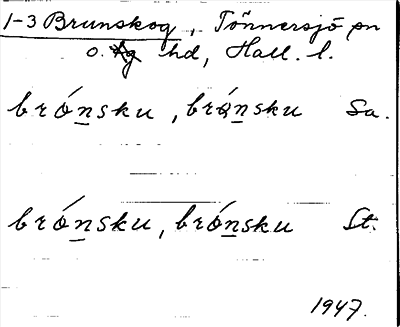 1-3 Brunskog, Tönnersjö sn
o. hd, Hall. l.
brónsku, brónsku Sa.
brónsku, brónsku St.
1947.